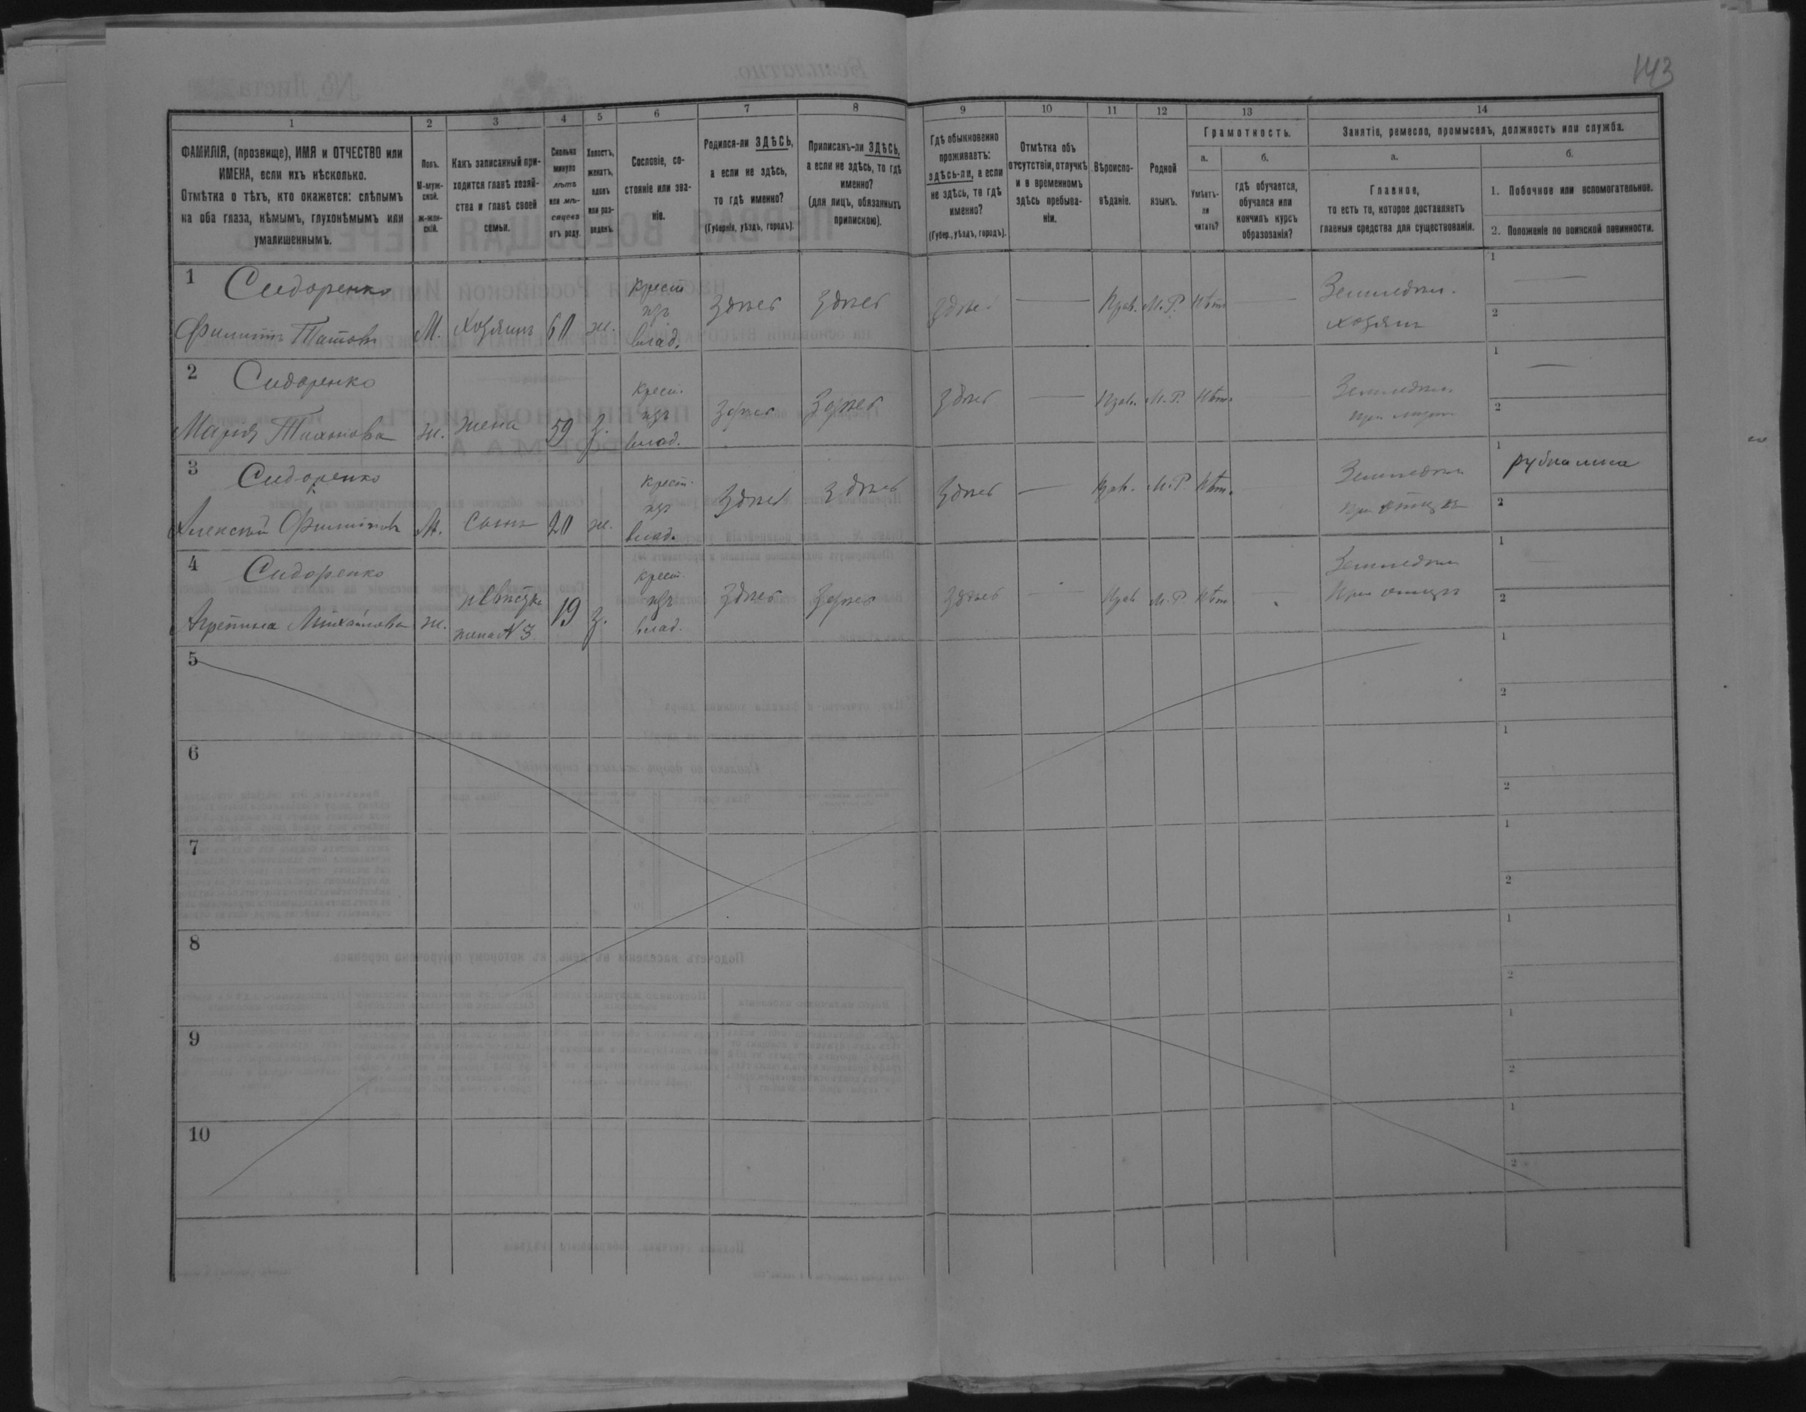 143
1 2 3 4 5 6 7 8 9 10 11 12 13 14
ФАМИЛІЯ, (прозвище), ИМЯ и ОТЧЕСТВО или
ИМЕНА, если ихъ нѣсколько.
Отмѣтка о тѣхъ, кто окажется: слѣпымъ
на оба глаза, нѣмымъ, глухонѣмымъ или
умалишеннымъ.
Полъ.
М-муж-
ской.
Ж-жен-
скій.
Какъ записанный при-
ходится главѣ хозяй-
ства и главѣ своей
семьи.
Сколько
минуло
лѣтъ
или мѣ-
сяцевъ
отъ роду.
Холостъ,
женатъ,
вдовъ
или раз-
веденъ.
Сословіе, со-
стояніе или зва-
ніе.
Родился-ли ЗДѢСЬ,
а если не здѣсь,
то гдѣ именно?
(Губернія, уѣздъ, городъ).
Приписанъ-ли ЗДѢСЬ,
а если не здѣсь, то гдѣ
именно?
(для лицъ, обязанныхъ
припискою).
Гдѣ обыкновенно
проживаетъ:
здѣсь-ли, а если
не здѣсь, то гдѣ
именно?
(Губер., уѣздъ, городъ).
Отмѣтка объ
отсутствіи, отлучкѣ
и о временномъ
здѣсь пребыва-
ніи.
Вѣроиспо-
вѣданіе.
Родной
языкъ.
Грамотность.
а.
Умѣетъ-
ли
читать?
б.
гдѣ обучается,
обучался или
кончилъ курсъ
образованія?
Занятіе, ремесло, промыселъ, должность или служба.
а.
Главное,
то есть то, которое доставляетъ
главныя средства для существованія.
б.
1. Побочное или вспомогательное.
2. Положеніе по воинской повинности.
1 Сидоренко
Филиппъ М. Хозяинъ 60 ж.
Крест.
изъ
влад.
Здѣсь Здѣсь Здѣсь — Прав. М.Р. Нѣтъ —
Земледѣл.
хозяинъ
1 —
2
2 Сидоренко
Марія ж. жена 59 з.
Крест.
изъ
влад.
Здѣсь Здѣсь Здѣсь — Прав. М.Р. Нѣтъ —
Земледѣл.
при мужѣ
1 —
2
3 Сидоренко
Алексѣй Филиповъ М. Сынъ 20 ж.
Крест.
изъ
влад.
Здѣсь Здѣсь Здѣсь — Прав. М.Р. Нѣтъ —
Земледѣл.
при отцѣ
1
2
4 Сидоренко
Агрепина Михайлова ж. невѣстка 19 з.
жена № 3
Крест.
изъ
влад.
Здѣсь Здѣсь Здѣсь — Прав. М.Р. Нѣтъ —
Земледѣл.
1 —
2
5
1
2
6
1
2
7
1
2
8
1
2
9
1
2
10
1
2